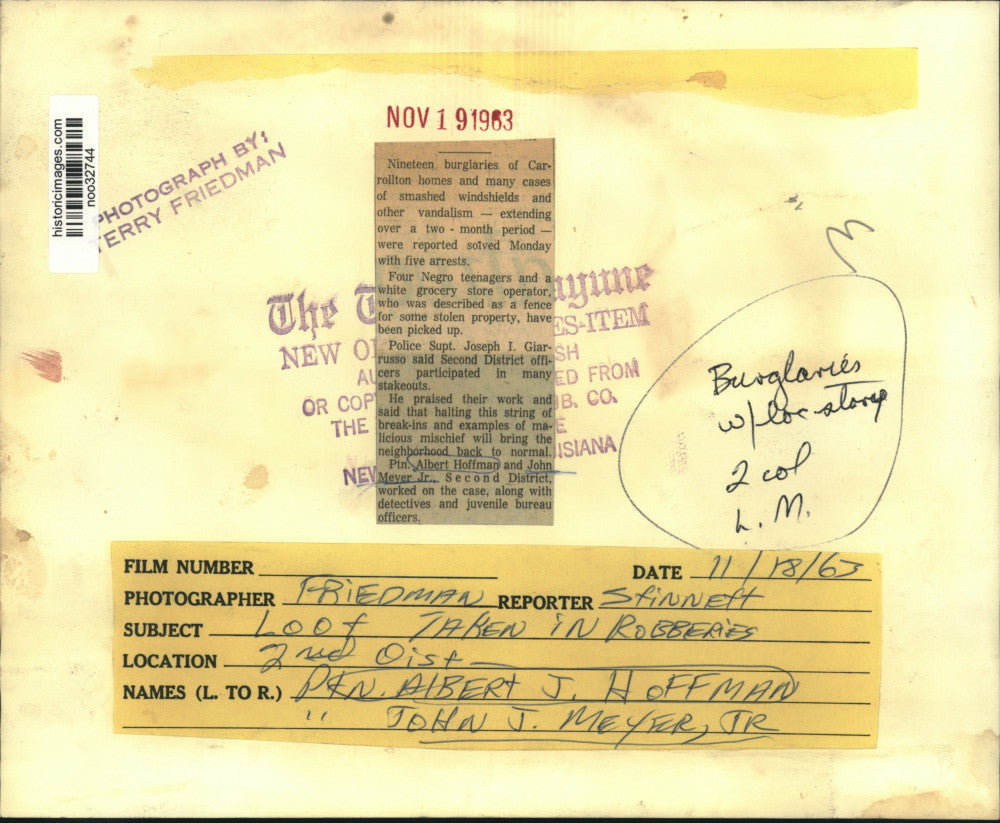 NOV 19 1963
historicimages.com
noo32744
PHOTOGRAPH BY:
TERRY FRIEDMAN
Nineteen burglaries of Car-
rollton homes and many cases
of smashed windshields and
other vandalism — extending
over a two - month period —
were reported solved Monday
with five arrests.
Four Negro teenagers and a
white grocery store operator,
who was described as a fence
for some stolen property, have
been picked up.
Police Supt. Joseph I. Giar-
russo said Second District offi-
cers participated in many
stakeouts.
He praised their work and
said that halting this string of
break-ins and examples of ma-
licious mischief will bring the
neighborhood back to normal.
Ptn. Albert Hoffman and John
Meyer Jr., Second District,
worked on the case, along with
detectives and juvenile bureau
officers.
The T ayune
ES-ITEM
NEW O SH
AU ED FROM
OR COP B. CO.
THE E
ISIANA
NEW
3
Burglaries
w/loc story
2 col
L. M.
FILM NUMBER
DATE 11/18/63
PHOTOGRAPHER FRIEDMAN REPORTER Stinnett
SUBJECT Loot TAKEN IN ROBBERIES
LOCATION 2nd Dist
NAMES (L. TO R.) PtN. AlBERt J. HOFFMAN
" JOHN J. MEYER, JR